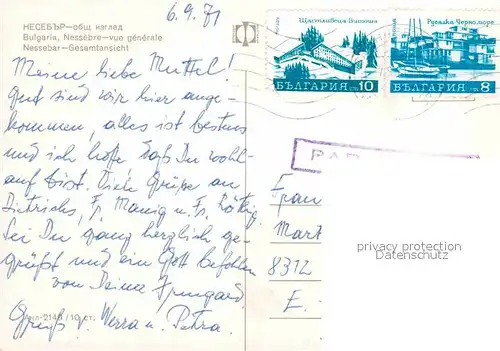 НЕСЕБЪР—общ изглед
Bulgaria, Nessèbre—vue générale
Nessebar—Gesamtansicht
6.9.71
Meine liebe Muttel!
Gut sind wir hier ange-
kommen, alles ist bestens
und ich hoffe daß Du wohl-
auf bist. Viele Grüße an
Dietrichs, Fr. Manig u. Fr.
Sei Du ganz herzlich ge-
grüßt und ein Gott befohlen
von Deiner Irmgard
Gruß v. Werra u. Petra.
2148/10 ст.
Щастливеца-Витоша
поща
БЪЛГАРИЯ ст. 10
Русалка Черноморе
БЪЛГАРИЯ ст. 8
PAR
Frau
Mart
8312
E.
privacy protection
Datenschutz